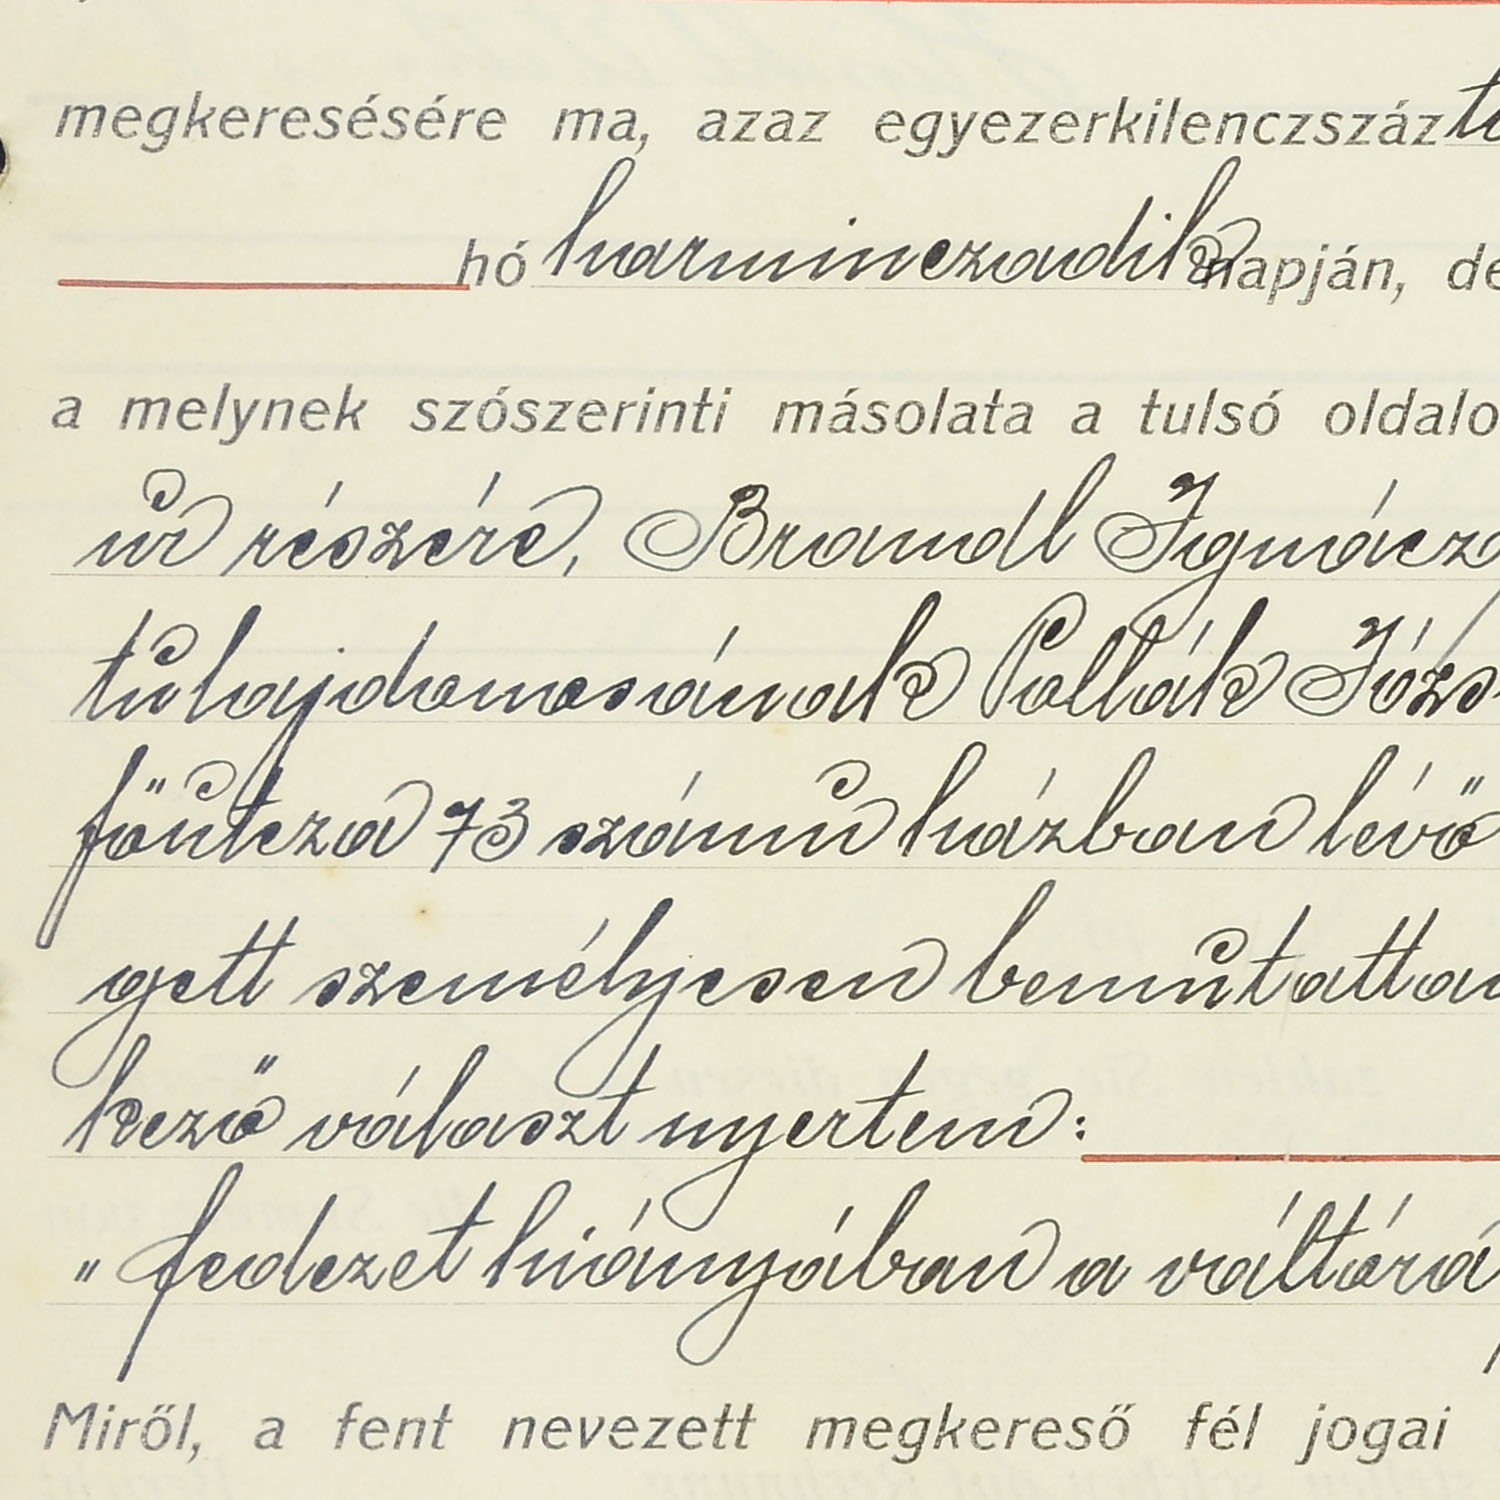 megkeresésére ma, azaz egyezerkilenczszáz
hó harminczadik napján, de
a melynek szószerinti másolata a tulsó oldalo
úr részére, Brandl Ignácz
tulajdonosának Pollák Józs
főutcza 73 számu házban lévő
gett személyesen bemutattam
kező választ nyertem:
„fedezet hiányában a váltóra
Miről, a fent nevezett megkereső fél jogai